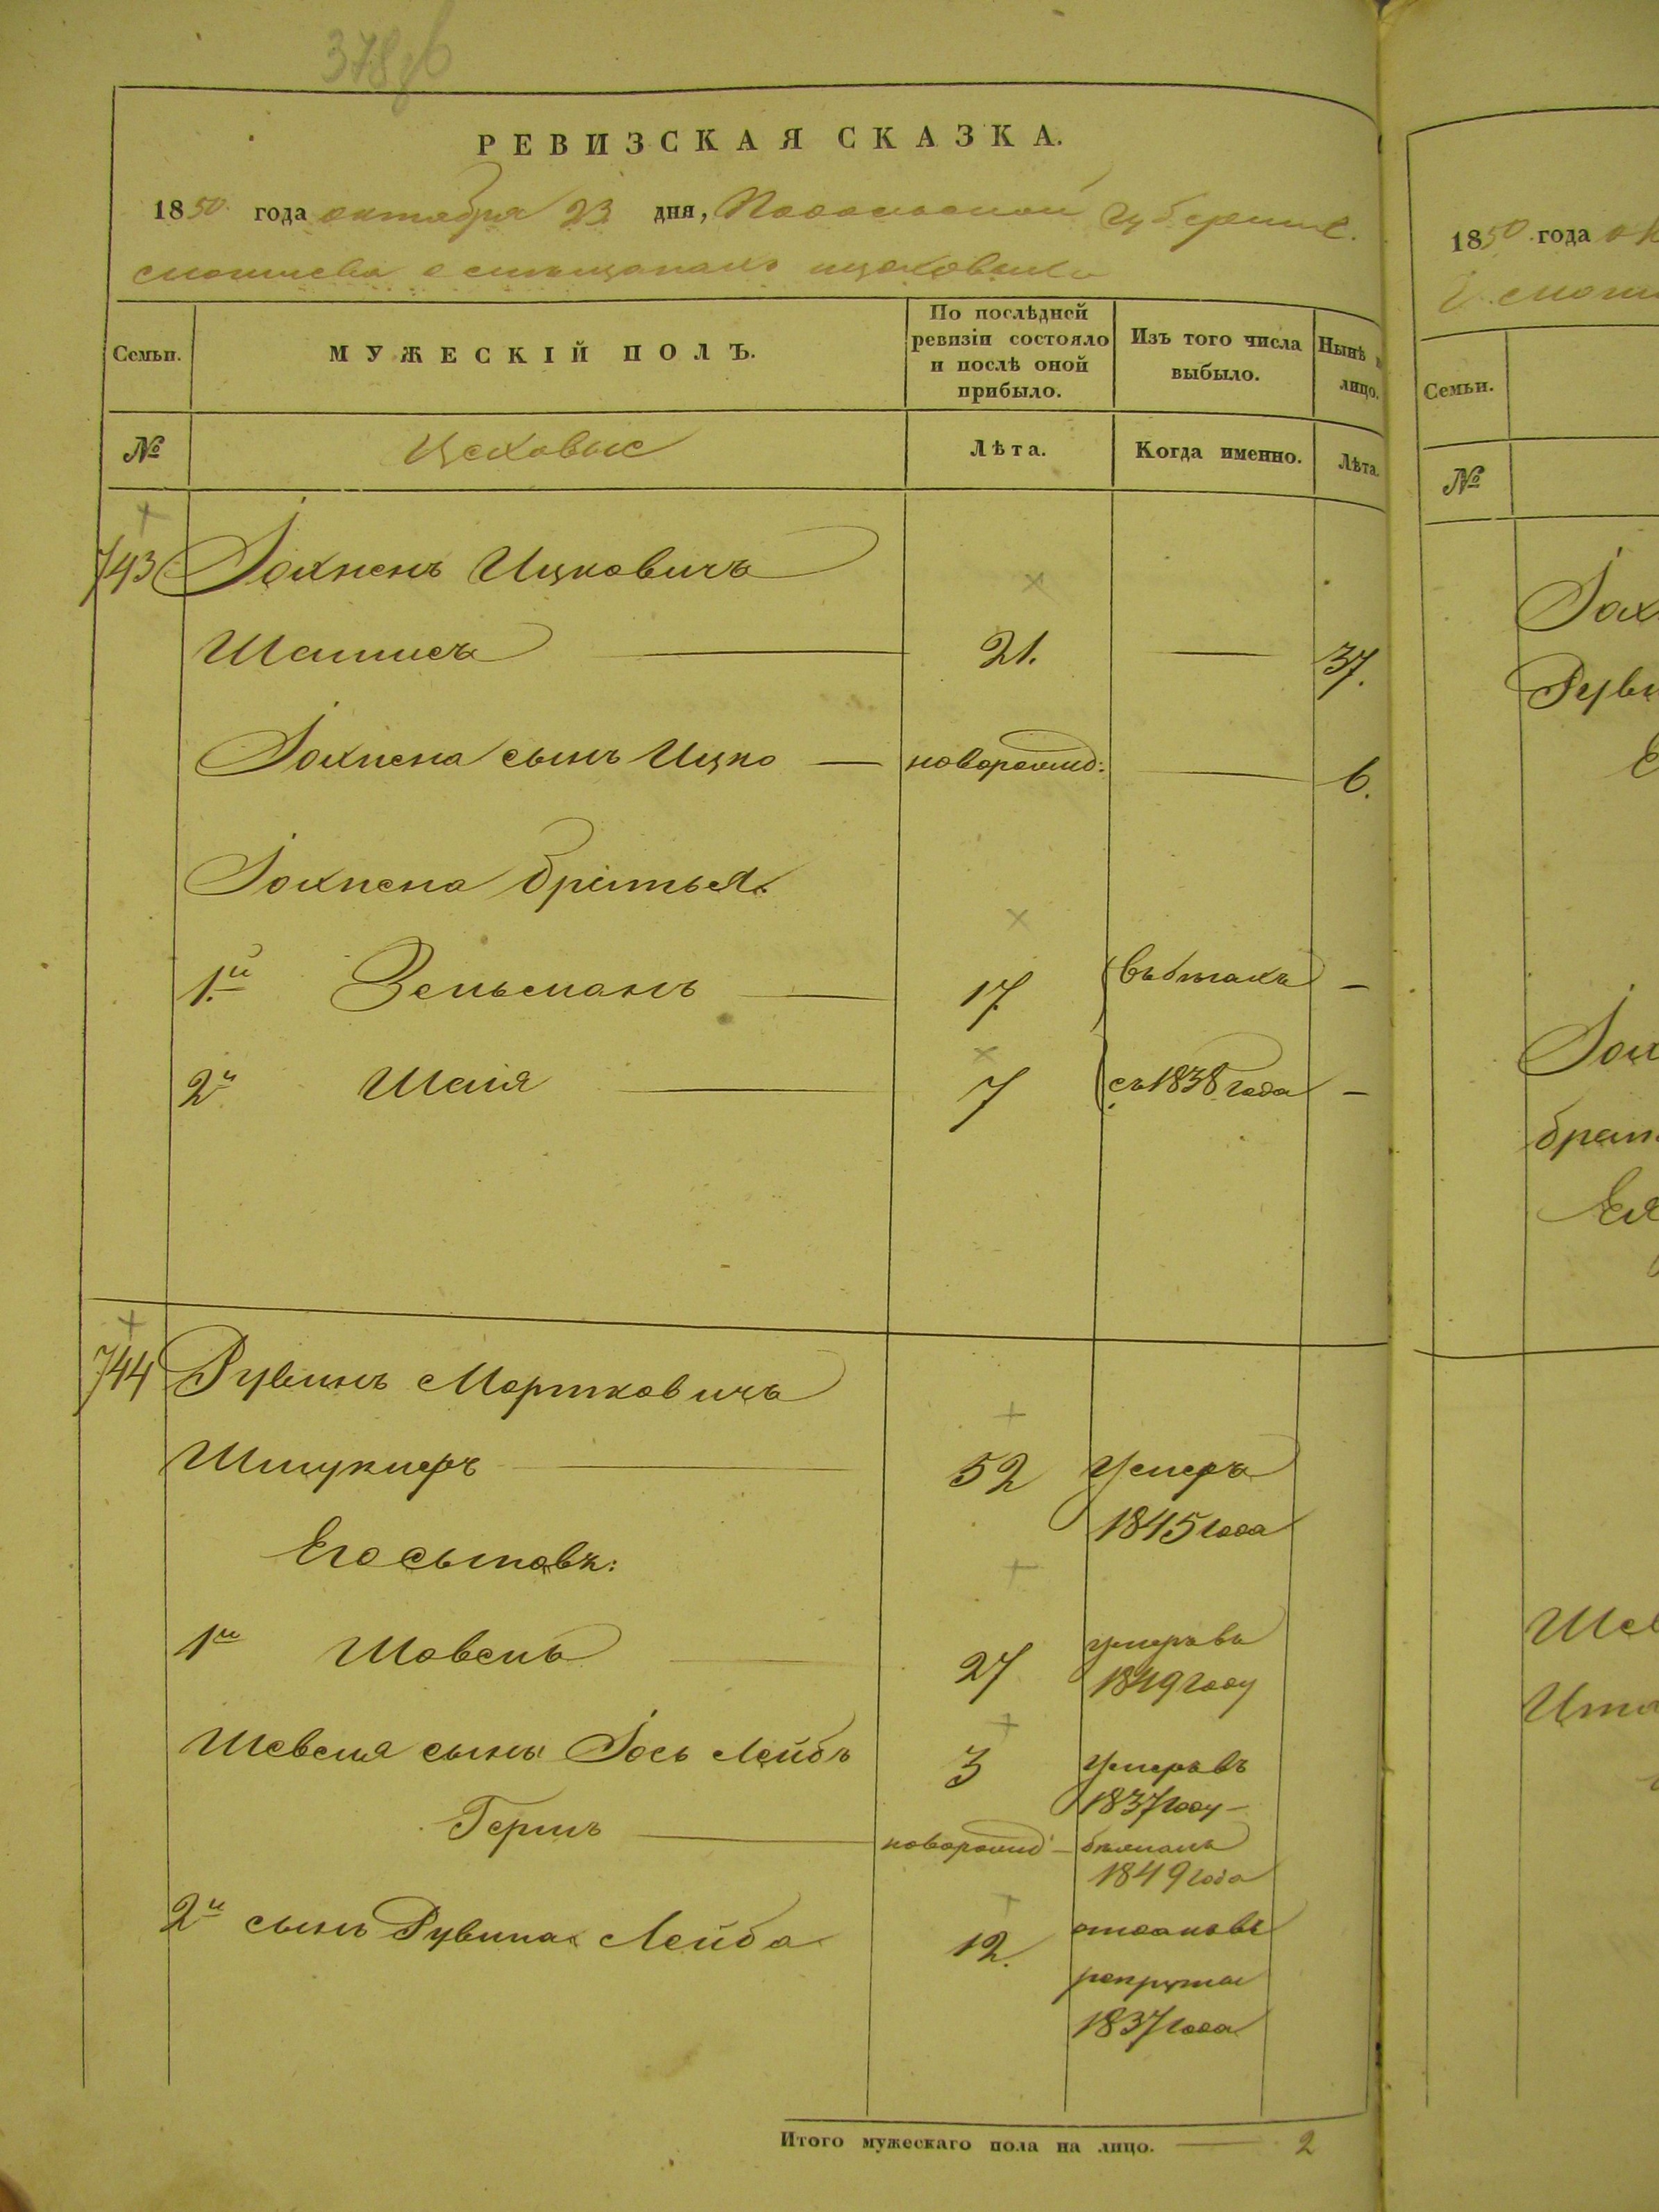 378об
РЕВИЗСКАЯ СКАЗКА.
1850 года октября 23 дня, Подольской Губерніи
могилева о мещанахъ цеховыхъ
Семьи.
МУЖЕСКІЙ ПОЛЪ.
По послѣдней ревизіи состояло и послѣ оной прибыло.
Изъ того числа выбыло.
Нынѣ
лицо.
№
Цеховые
Лѣта.
Когда именно.
Лѣта.
743 Іохненъ Ицковичъ
21. — 37.
Іохнена сынъ Ицко — новорожд: — 6.
Іохнена братья
1й Зельманъ — 17 въ бегахъ —
2й Шаія — 7 съ 1838 года —
744 Рувинъ Мортковичъ
Штукмеръ — 52 Умеръ
1845 года
Его сыновъ:
1й — 27 умеръ въ
1849 году
сынъ Іось Лейбъ 3 Умеръ въ
1837 году
Гершъ — новорожд —
1849 года
2й сынъ Рувина Лейба 12. отданъ въ
рекруты
1837 года
Итого мужескаго пола на лицо. — 2
1850 года
Семьи.
№